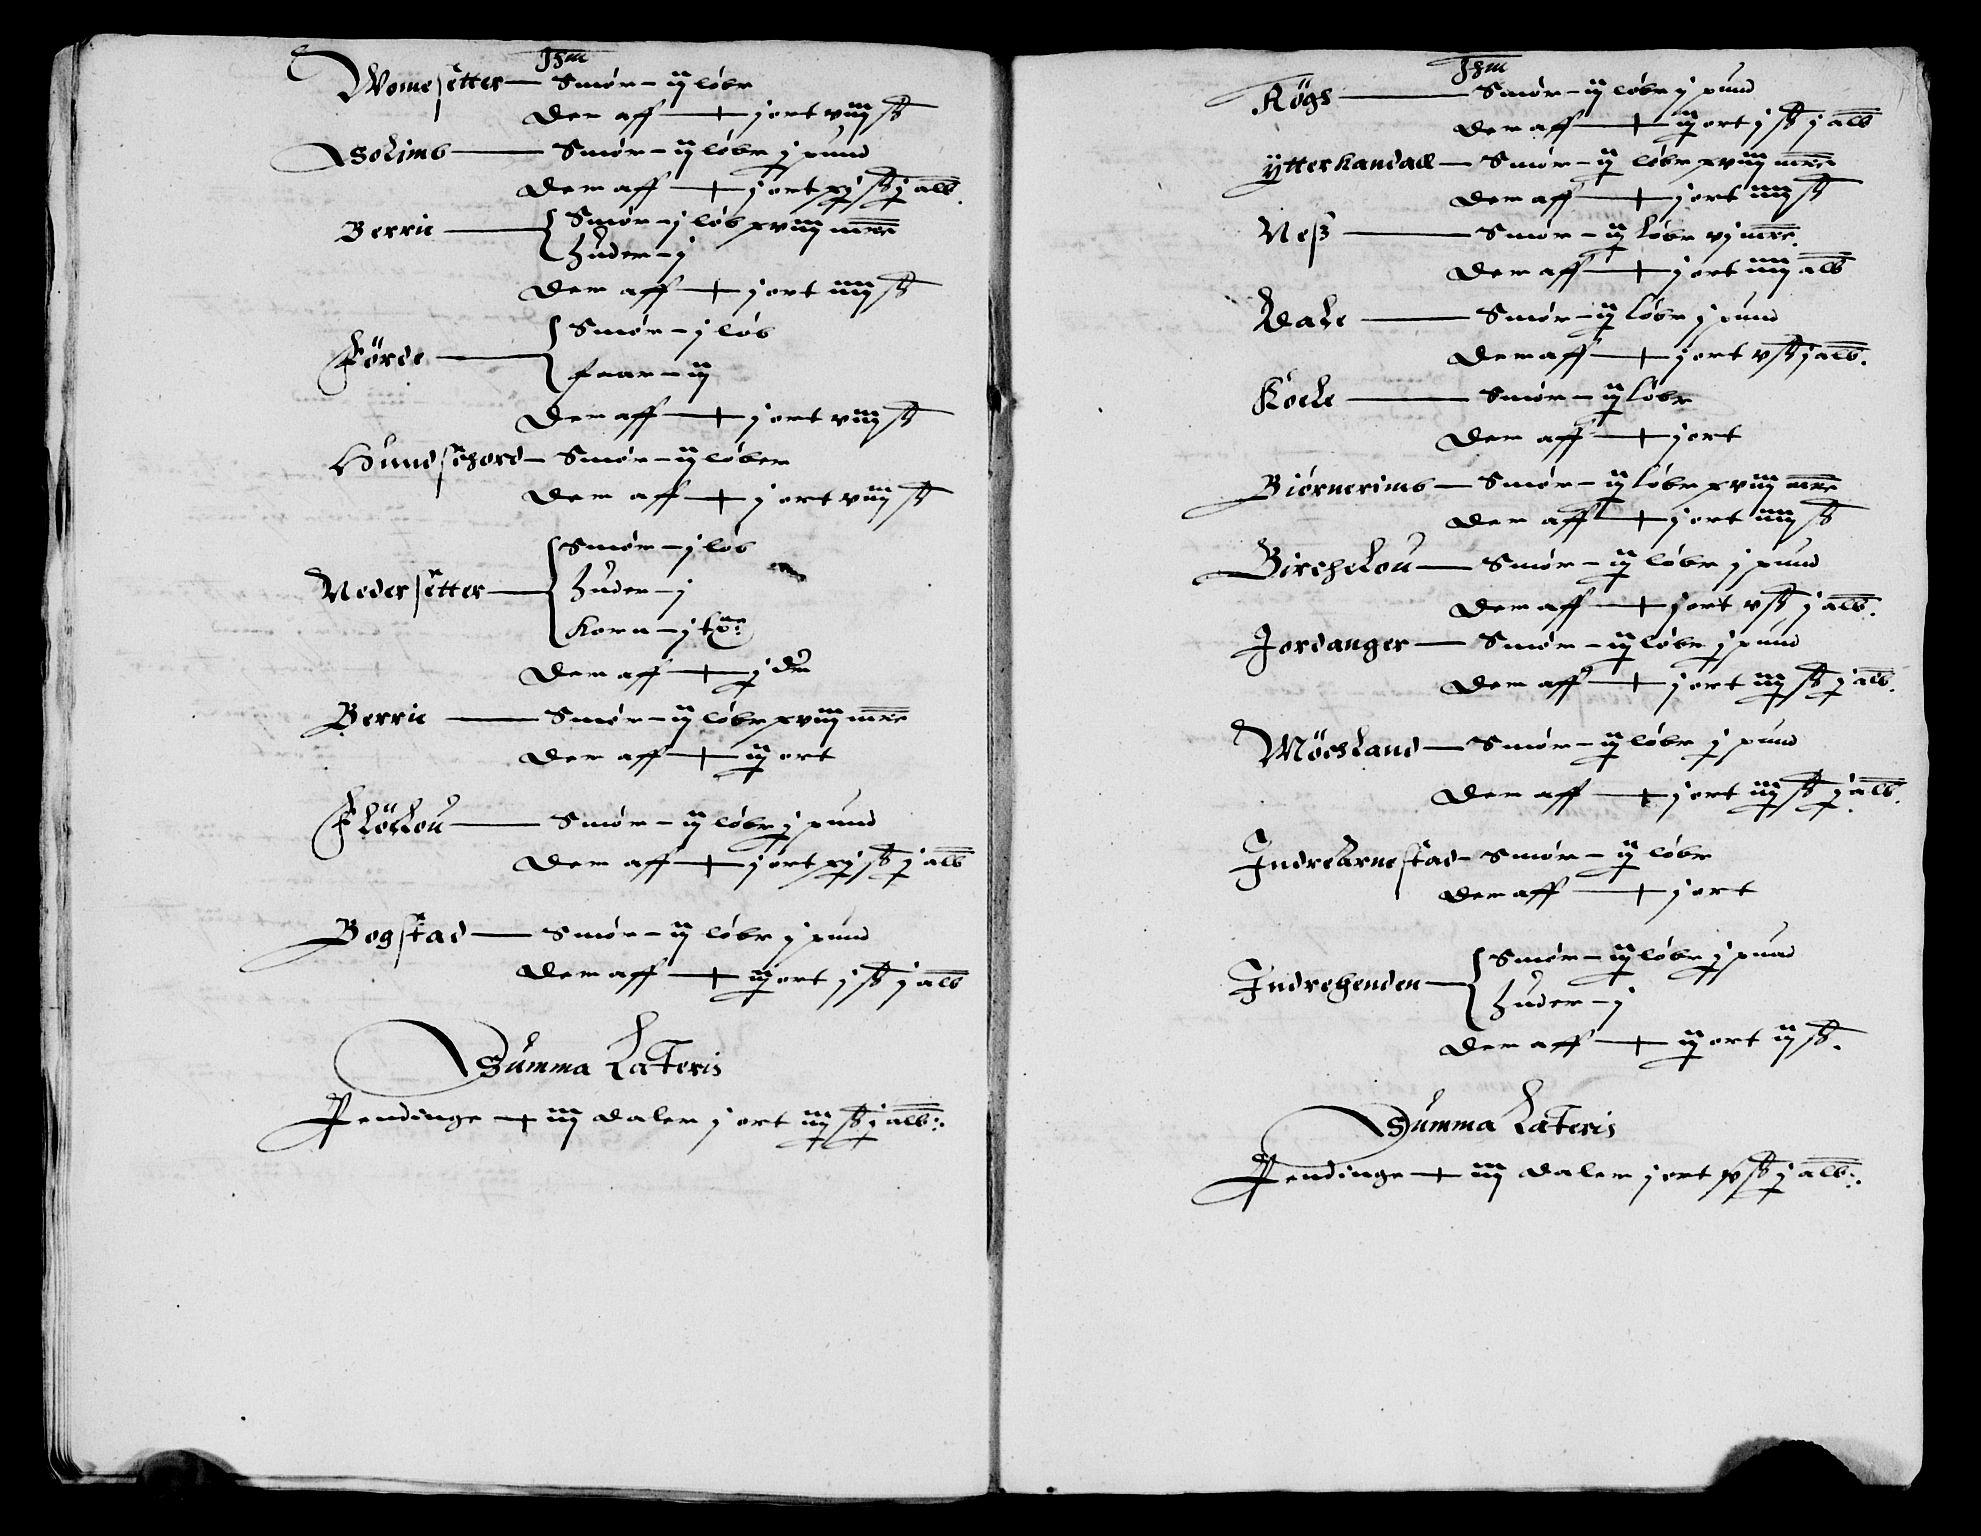 Jhm
Womesetter — Smør – ij løbr
Der aff — + j ort viij ß
Solims — Smør – ij løbr j pund
Der aff — + j ort xj ß j alb.
Berrie — Smør – j løb xviij mrc
Huder – j
Der aff — + j ort iiij ß
Førde — Smør – j løb
Faar – ij
Der aff — + j ort viij ß
Hundschord – Smør – ij løber
Der aff — + j ort viij ß
Nedersetter — Smør – j løb
Huder – j
Korn – j tøe:
Der aff — + j dr
Berrie — Smør – ij løbr xviij mrc
Der aff — + ij ort
Fløllou — Smør – ij løbr j pund
Der aff — + j ort xj ß j alb
Bogstad — Smør – ij løbr j pund
Der aff — + iij ort j ß j alb
Summa Lateris
Pendinge + iiij daler j ort iiij ß j alb:.
Jhm
Røgs — Smør – ij løbr j pund
Der aff — + ij ort j ß j alb
Ytterhandall — Smør – ij løbr xviij mrc
Der aff — + j ort iiij ß
Neß — Smør – ij løbr vj mrc.
Der aff — + j ort iiij alb
Dale — Smør – ij løbr j pund
Der aff — + j ort v ß j alb.
Køele — Smør – ij løbr
Der aff — + j ort
Biørnerims — Smør – ij løbr xviij mrc
Der aff — + j ort iiij ß
Birchelou — Smør – ij løbr j pund
Der aff — + j ort v ß j alb.
Jordanger — Smør – ij løbr j pund
Der aff — + j ort iij ß j alb.
Møesland — Smør – ij løbr j pund
Der aff — + j ort iij ß j alb.
Indrearnestad – Smør – ij løbr
Der aff — + j ort
Indrehenden — Smør – ij løbr j pund
Huder – j
Der aff — + ij ort ij ß.
Summa Lateris
Pendinge + iiij daler j ort xv ß j alb:.